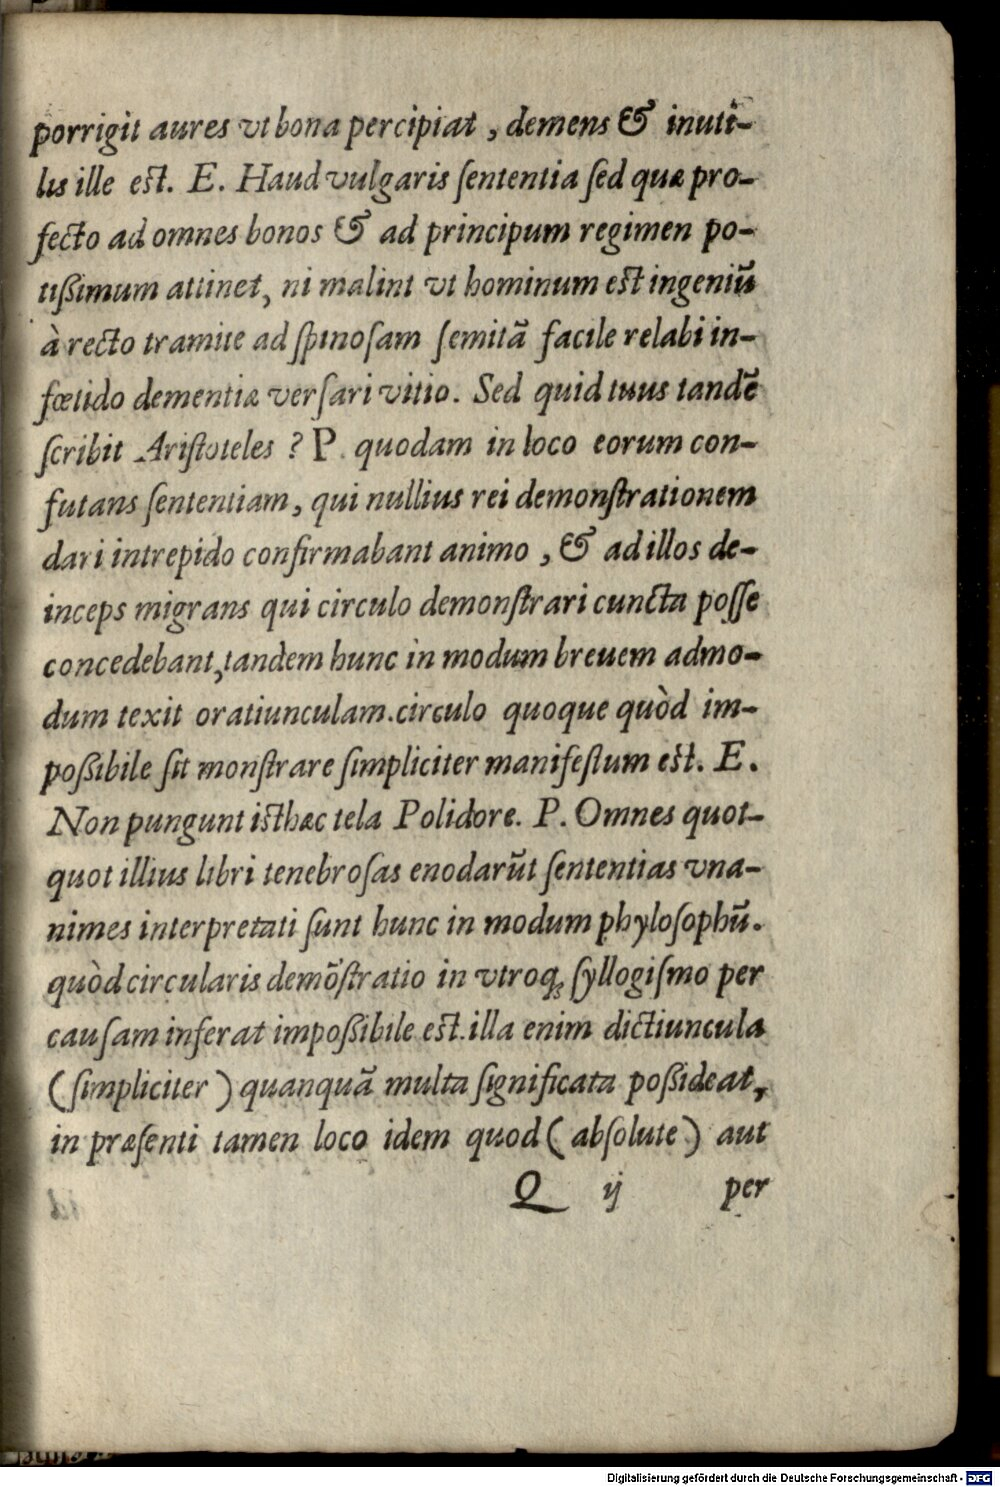 porrigit aures vt bona percipiat, demens & inuti-
lis ille est. E. Haud vulgaris sententia sed quæ pro-
fecto ad omnes bonos & ad principum regimen po-
tißimum attinet, ni malint vt hominum est ingeniũ
à recto tramite ad spinosam semitã facile relabi in-
fœtido dementiæ versari vitio. Sed quid tuus tandẽ
scribit Aristoteles? P. quodam in loco eorum con-
futans sententiam, qui nullius rei demonstrationem
dari intrepido confirmabant animo, & ad illos de-
inceps migrans qui circulo demonstrari cuncta posse
concedebant, tandem hunc in modum breuem admo-
dum texit oratiunculam. circulo quoque quòd im-
poßibile sit monstrare simpliciter manifestum est. E.
Non pungunt isthæc tela Polidore. P. Omnes quot-
quot illius libri tenebrosas enodarũt sententias vna-
nimes interpretati sunt hunc in modum phylosophũ.
quòd circularis demõstratio in vtroq; syllogismo per
causam inferat impoßibile est. illa enim dictiuncula
(simpliciter) quanquã multa significata poßideat,
in præsenti tamen loco idem quod (absolute) aut
Q ij per
Digitalisierung gefördert durch die Deutsche Forschungsgemeinschaft - DFG